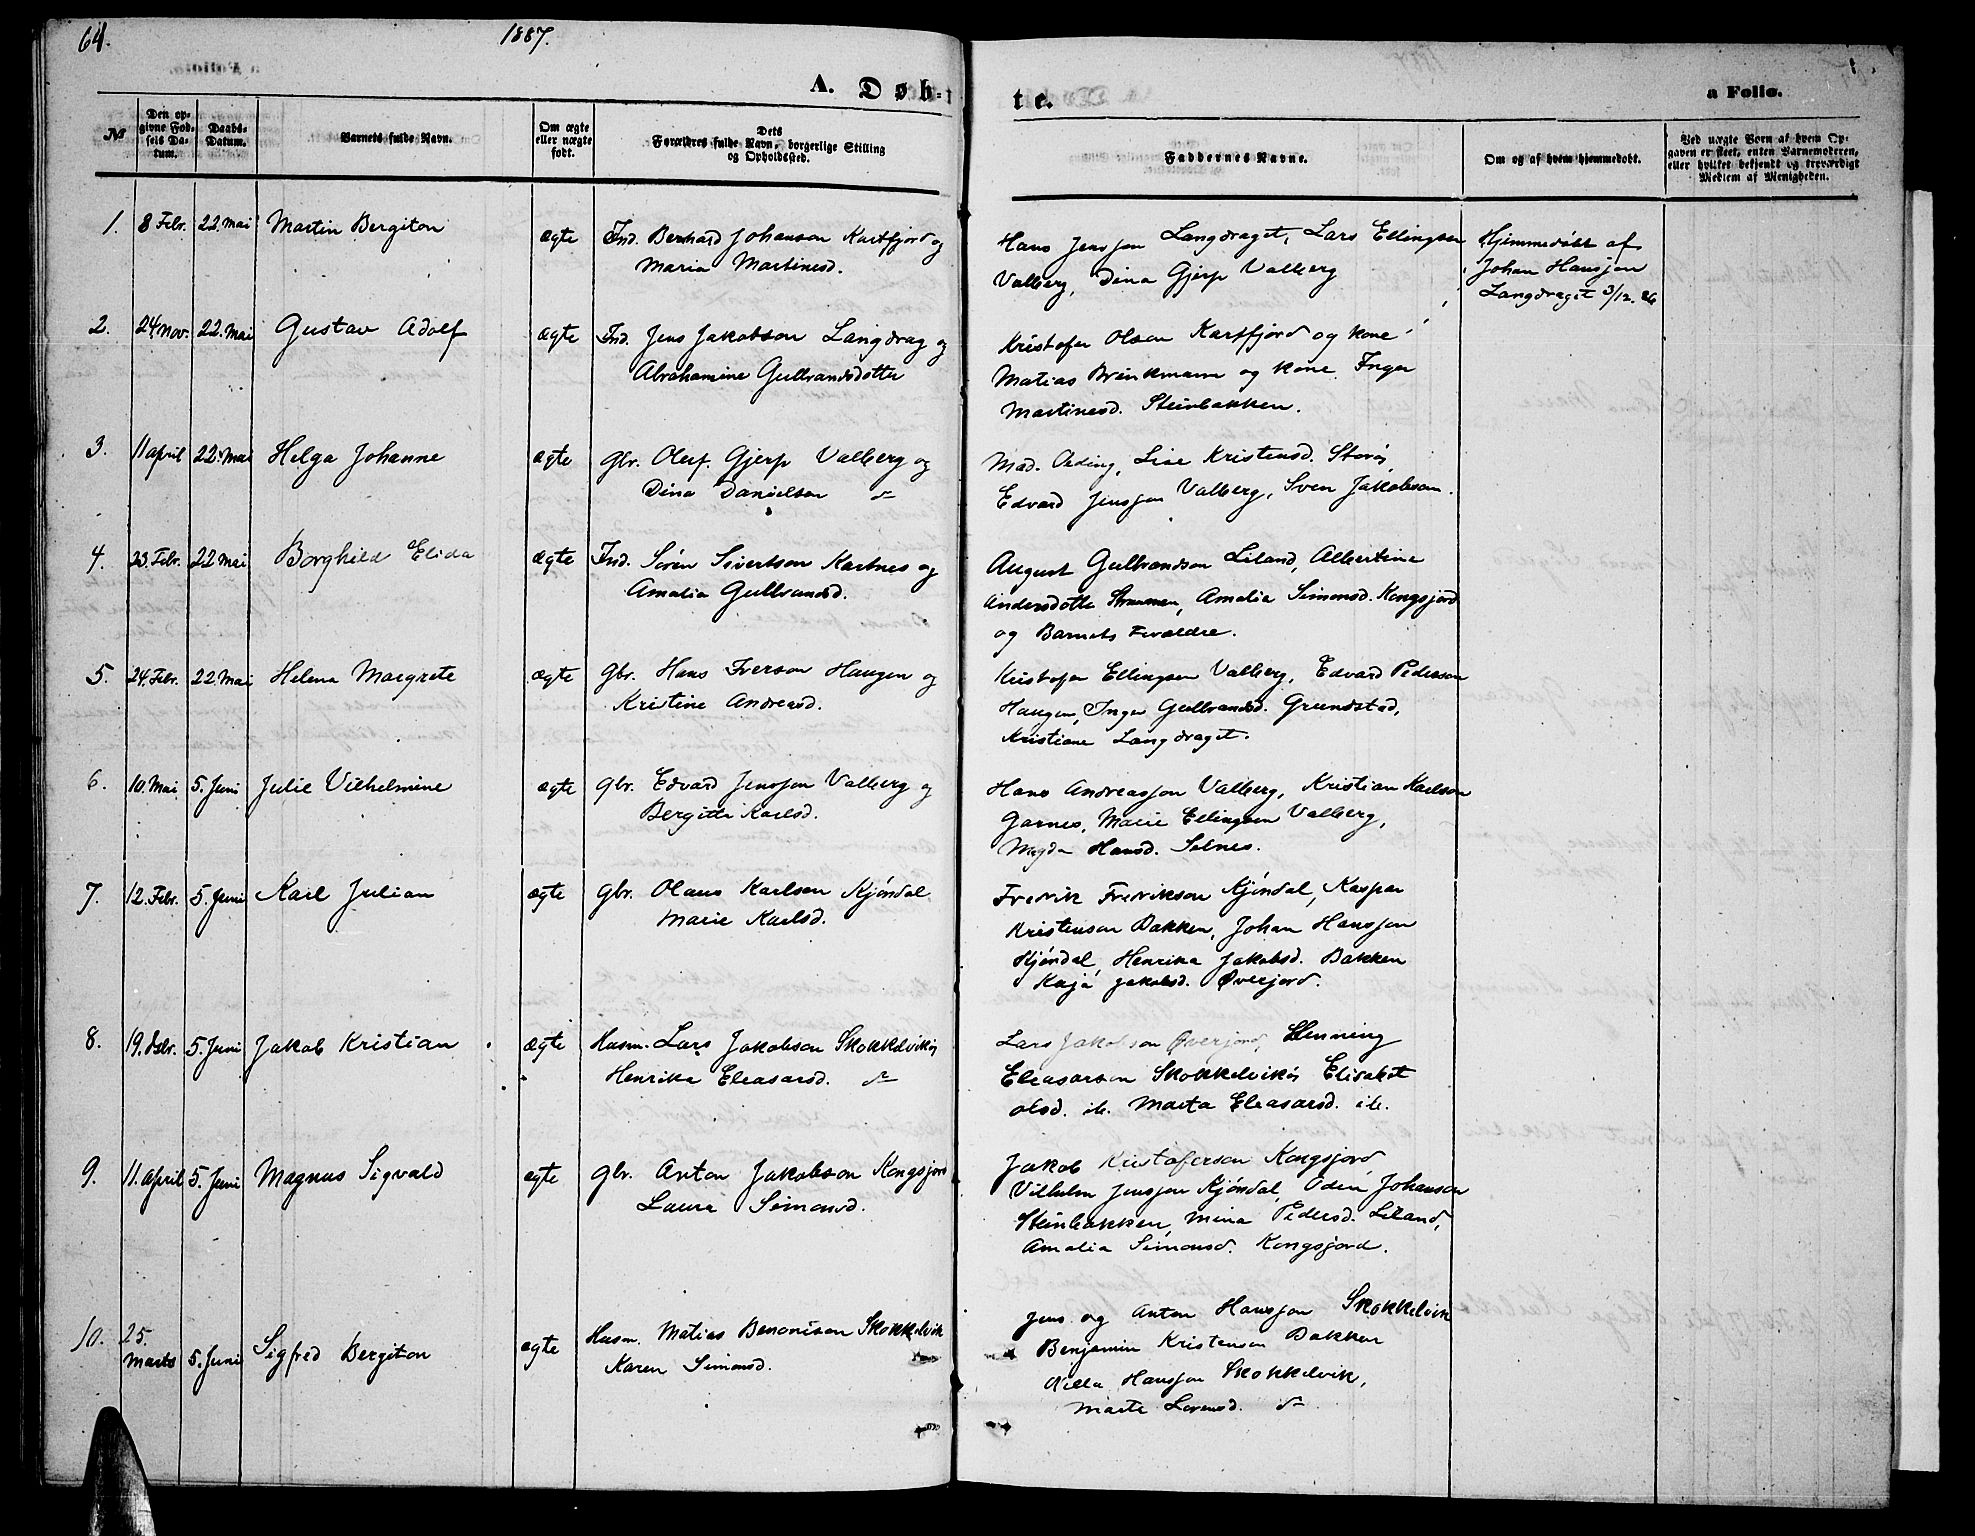 64.
1887.
A. Døb-
te.
a Folio.
№
Den op-
givne Fød-
sels Da-
tum.
Daabs-
Datum.
Barnets fulde Navn.
Om ægte
eller uægte
født.
Dets
Forældres fulde Navn, borgerlige Stilling
og Opholdssted.
Faddernes Navne.
Om og af hvem hjemmedøbt.
Ved uægte Børn af hvem Op-
gaven er skeet, enten Barnemoderen,
eller hvilket bekjendt og troværdigt
Medlem af Menigheden.
1. 8 Febr. 22. Mai Martin Bergiton ægte Ind. Berhard Johanson Kartfjord og
Maria Martinesd.
Hans Jensson Langdraget, Lars Ellingsen
Valberg, Dina Gjerp Valberg
Hjemmedøbt af
Johan Hansson
Langdraget 3/12. 86
2. 24 Nov. 22. Mai Gustav Adolf ægte Ind. Jens Jakobson Langdrag og
Abrahamine Gulbrandsdotter
Kristofer Olsen Kartfjord og kone
Matias Brinkmann og kone Inger
Martinesd. Steinbakken.
3. 11 April 22. Mai Helga Johanne ægte Gbr. Oluf Gjerp Valberg og
Dina Danielsen
Mad. Oeding, Lise Kristensd. Storö,
Edvard Jensson Valberg, Sven Jakobson.
4. 23. Febr. 22 Mai Borghild Elida ægte Ind. Sören Sivertson Kartnes og
Amalia Gulbrandsd.
August Gulbrandson Leland, Albertine
Andersdotter Straumen, Amalia Simonsd. Kongsjord
og Barnets Forældre.
5. 24. Febr. 22. Mai Helena Margrete ægte Gbr. Hans Iverson Haugen og
Kristine Andreasd.
Kristofer Ellingsen Valberg, Edvard Pederson
Haugen, Inger Gulbrandsd. Grundstad,
Kristiane Langdraget.
6. 10. Mai 5. Juni Julie Vilhelmine ægte Gbr. Edvard Jensson Valberg og
Bergitte Karlsd.
Hans Andreasson Valberg, Kristian Karlson
Garnes, Marie Ellingsen Valberg,
Magda Hansd. Selnes.
7. 12. Febr. 5. Juni Karl Julian ægte Gbr. Olaus Karlsen Kjöndal
Marie Karlsd.
Fredrik Fredrikson Kjöndal, Kaspar
Kristenson Bakken, Johan Hansson
Kjöndal, Henrika Jakobsd. Bakken
Kaja Jakobsd. Øverjord.
8. 19. Febr. 5. Juni Jakob Kristian ægte Husm. Lars Jakobson Skokkelvikö
Henrika Eleasarsd.
Lars Jakobson Øverjord, Henning
Eleasarson Skokkelvikö Elisabet
olsd. ib. Marta Eleasarsd. ib.
9. 11. April 5. Juni Magnus Sigvald ægte Gbr. Anton Jakobson Kongsjord
Laura Simonsd.
Jakob Kristoferson Kongsjord
Vilhelm Jensson Kjöndal, Odin Johanson
Steinbakken, Mina Pedersd. Leland,
Amalia Simonsd. Kongsjord.
10. 25.
Marts 5. Juni Sigfred Bergiton ægte Husm. Matias Benonison Skokkelvik
Karen Simonsd.
Jens og Anton Hansson Skokkelvik
Benjamin Kristensen Bakken
Hansson Skokkelvik,
Marte Lorensd.